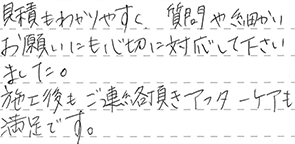 見積もわかりやすく、質問や細かい
お願いにも心切に対応して下さい
ました。
施工後もご連絡頂きアフターケアも
満足です。